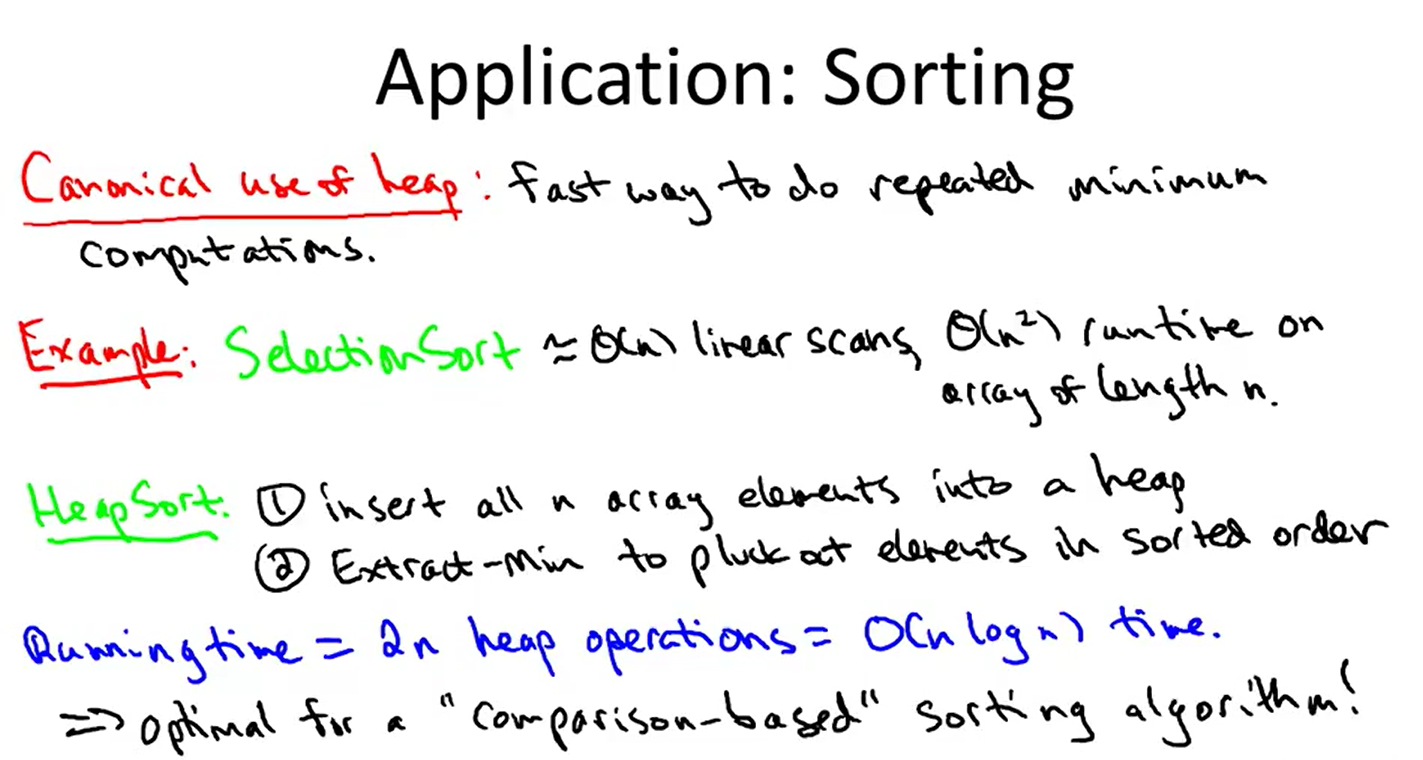 Application: Sorting
Canonical use of heap: fast way to do repeated minimum
computations.
Example: SelectionSort ≈ Θ(n) linear scans, Θ(n²) runtime on
array of length n.
HeapSort: ① insert all n array elements into a heap
② Extract-Min to pluck out elements in sorted order
Running time = 2n heap operations = O(n log n) time.
=> optimal for a "comparison-based" sorting algorithm!